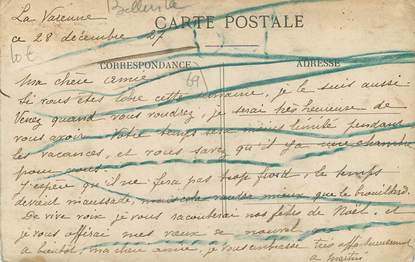 La Varenne Belleville
CARTE POSTALE
ce 28 décembre 27
10€
CORRESPONDANCE ADRESSE
Ma chère amie 69
Si vous êtes libre cette semaine, je le suis aussi
Venez quand vous voudrez, je serai très heureuse de
vous avoir. Votre temps sera moins limité pendant
les vacances, et vous savez qu'il y a une chambre
pour vous.
J'espère qu'il ne fera pas trop froid, le temps
devient maussade, mais cela vaudra mieux que le brouillard.
De vive voix je vous raconterai nos fêtes de Noël, et
je vous offrirai mes vœux de nouvel an
à bientôt, ma chère amie, je vous embrasse très affectueusement